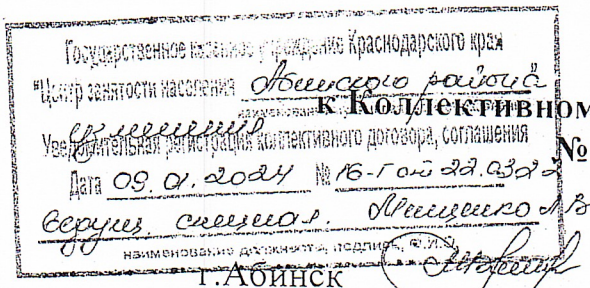 Государственное казенное учреждение Краснодарского края
"Центр занятости населения Абинского района
к Коллективном
Уведомительная регистрация коллективного договора, соглашения
№
Дата 09.01.2024 № 16-Г от 22.03.22
ведущ. специал. Мищенко А В
наименование должности, подпись, Ф.И.О.
г.Абинск